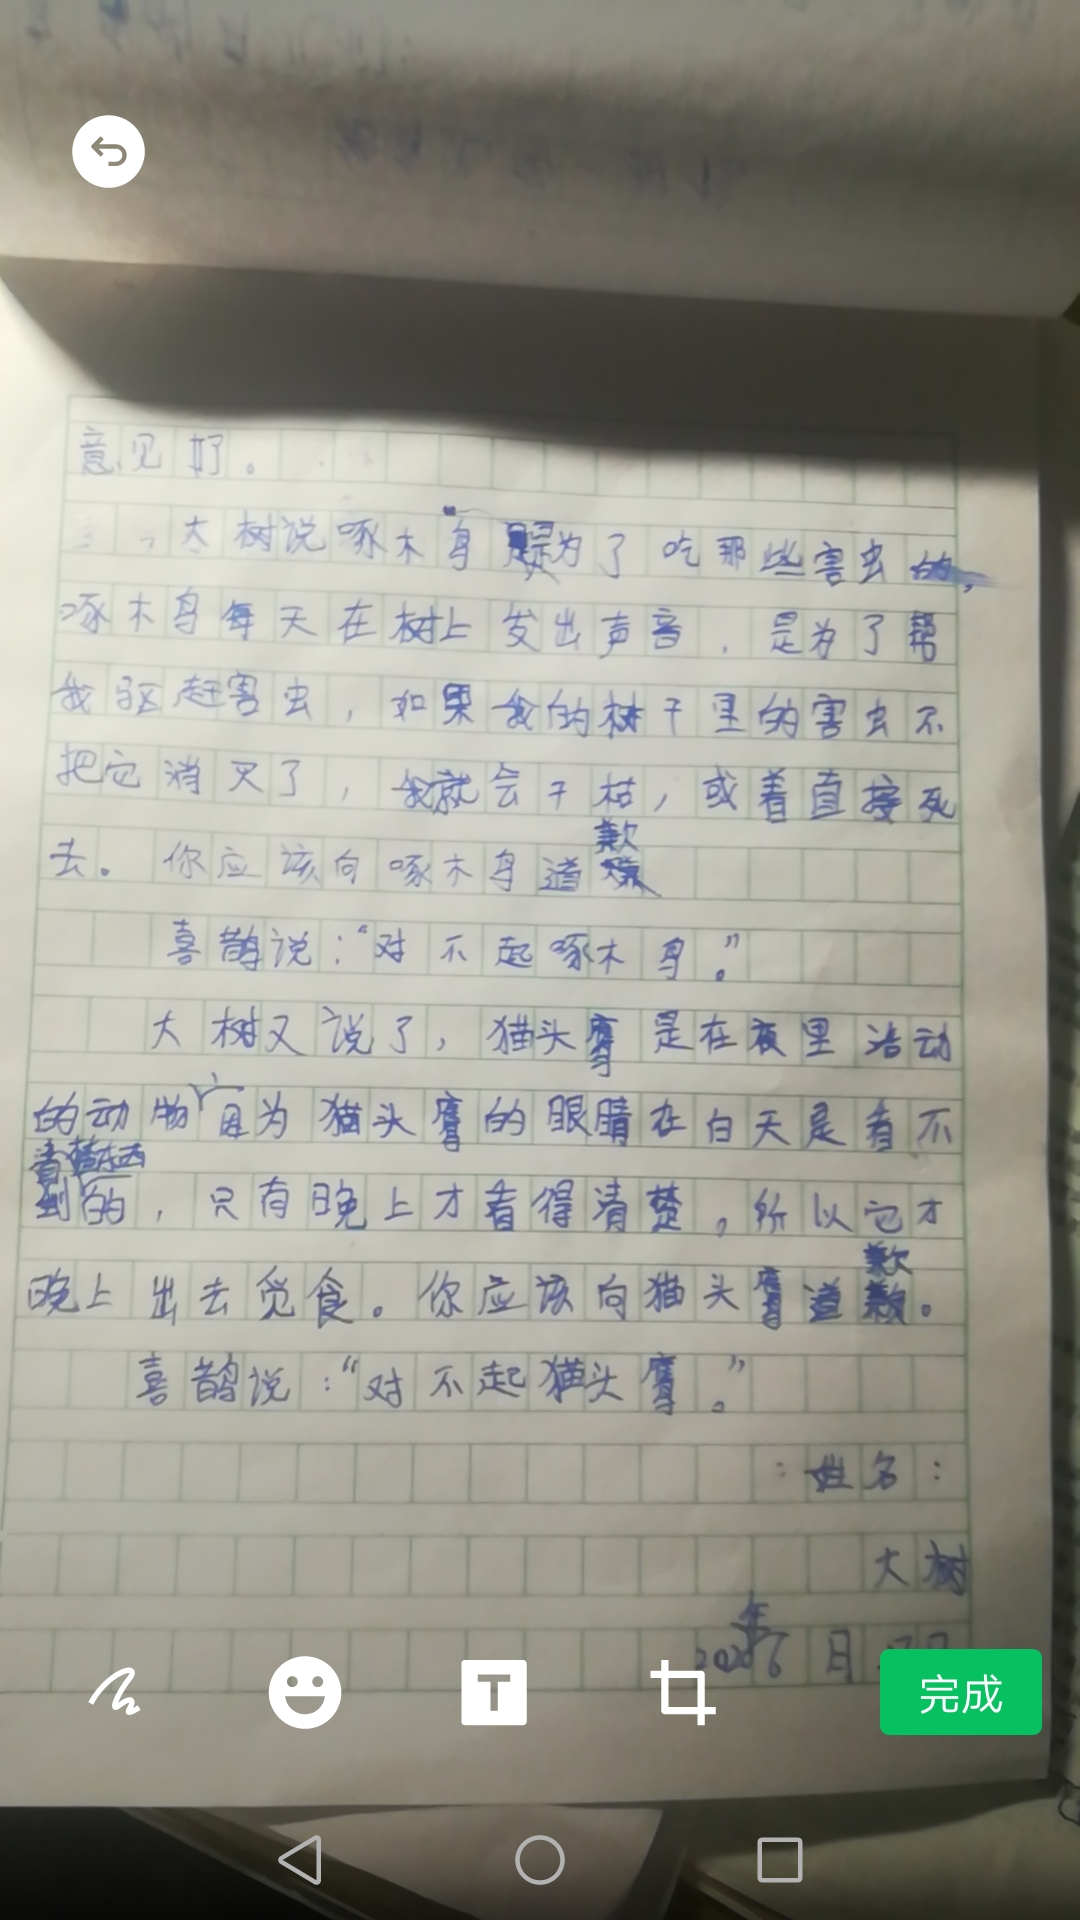 意见好。
大树说啄木鸟是为了吃那些害虫的,
啄木鸟每天在树上发出声音,是为了帮
我驱赶害虫,如果我的树干里的害虫不
把它消灭了,我就会干枯,或着直接死
歉
去。你应该向啄木鸟道
喜鹊说:“对不起啄木鸟。”
大树又说了,猫头鹰是在夜里活动
的动物,因为猫头鹰的眼睛在白天是看不
清楚东西
的,只有晚上才看得清楚。所以它才
歉
晚上出去觅食。你应该向猫头鹰道歉。
喜鹊说:“对不起猫头鹰。”
:姓名:
大树
年
2020 6月
完成